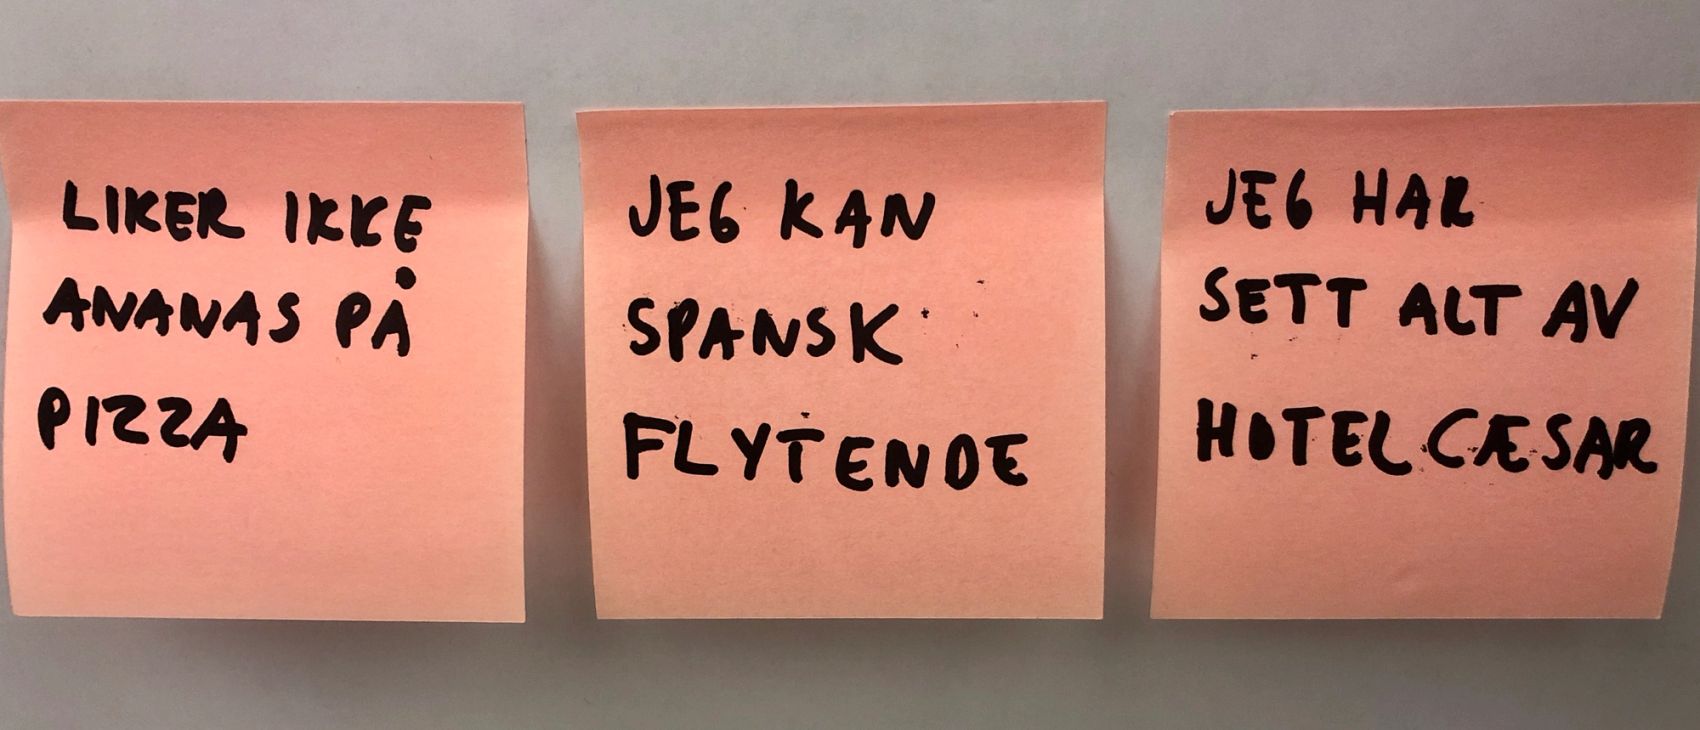 LIKER IKKE
ANANAS PÅ
PIZZA
JEG KAN
SPANSK
FLYTENDE
JEG HAR
SETT ALT AV
HOTEL CÆSAR